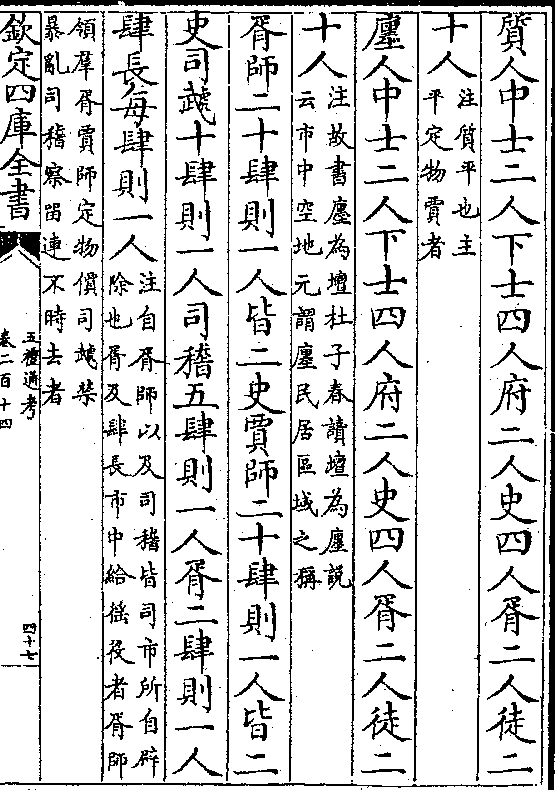 質人中士二人下士四人府二人史四人胥二人徒二
十人注質平也主
平定物賈者
廛人中士二人下士四人府二人史四人胥二人徒二
十人注故書廛為壇杜子春讀壇為廛說
云市中空地元謂廛民居區域之稱
胥師二十肆則一人皆二史賈師二十肆則一人皆二
史司虣十肆則一人司稽五肆則一人胥二肆則一人
肆長每肆則一人注自胥師以及司稽皆司市所自辟
除也胥及肆長市中給徭役者胥師
領羣胥賈師定物價司虣禁
暴亂司稽察留連不時去者
欽定四庫全書
五禮通考
卷二百十四
四十七